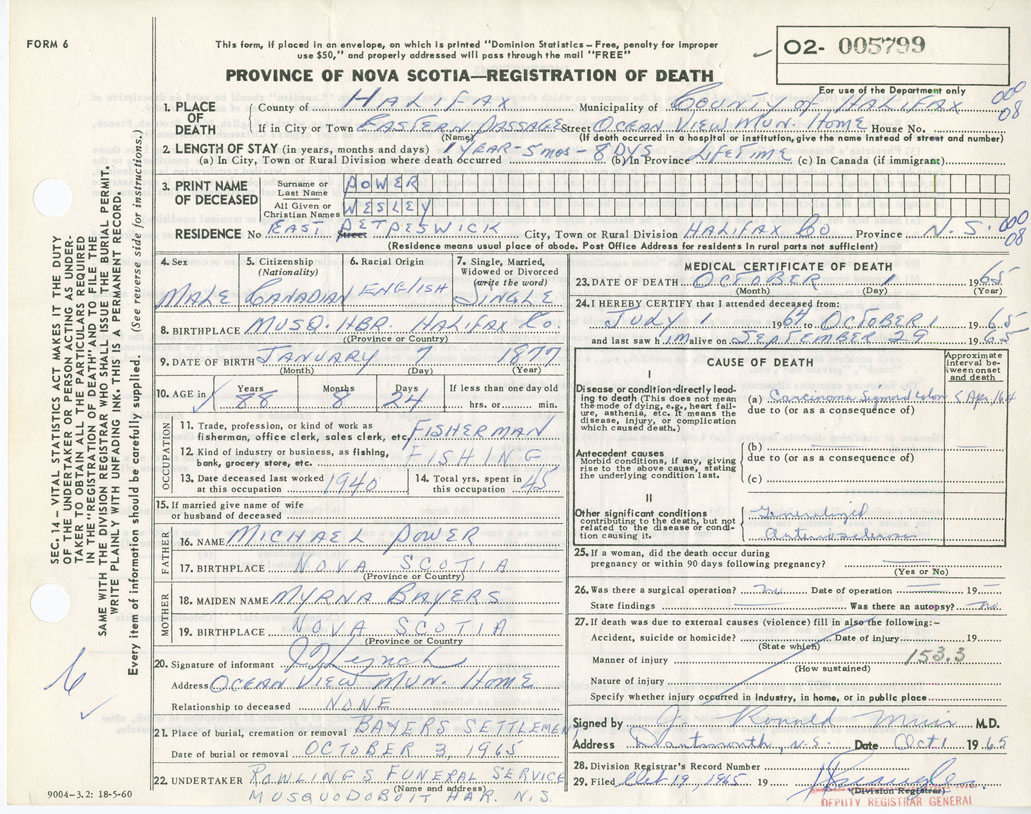 FORM 6
This form, if placed in an envelope, on which is printed "Dominion Statistics – Free, penalty for improper
use $50," and properly addressed will pass through the mail "FREE"
PROVINCE OF NOVA SCOTIA—REGISTRATION OF DEATH
02- 005799
For use of the Department only
000
08
1. PLACE OF DEATH
County of HALIFAX Municipality of COUNTY of HALIFAX
If in City or Town EASTERN PASSAGE Street OCEAN VIEW MUN. HOME House No.
(Name) (If death occurred in a hospital or institution, give the name instead of street and number)
2. LENGTH OF STAY (in years, months and days) 1 YEAR-5 mos-8 DYS LIFETIME
(a) In City, Town or Rural Division where death occurred (b) In Province (c) In Canada (if immigrant)
3. PRINT NAME OF DECEASED
Surname or Last Name POWER
All Given or Christian Names WESLEY
RESIDENCE No EAST PETPESWICK Street City, Town or Rural Division HALIFAX CO Province N.S.
000
08
(Residence means usual place of abode. Post Office Address for residents in rural parts not sufficient)
4. Sex MALE
5. Citizenship (Nationality) CANADIAN
6. Racial Origin ENGLISH
7. Single, Married, Widowed or Divorced (write the word) SINGLE
8. BIRTHPLACE MUSQ. HBR. HALIFAX Co.
((Province or Country)
9. DATE OF BIRTH JANUARY 7 1877
(Month) (Day) (Year)
10. AGE in Years 88 Months 8 Days 24 If less than one day old hrs. or min.
OCCUPATION
11. Trade, profession, or kind of work as fisherman, office clerk, sales clerk, etc. FISHERMAN
12. Kind of industry or business, as fishing, bank, grocery store, etc. FISHING
13. Date deceased last worked at this occupation 1940
14. Total yrs. spent in this occupation 45
15. If married give name of wife or husband of deceased
FATHER
16. NAME MICHAEL POWER
17. BIRTHPLACE NOVA SCOTIA
(Province or Country)
MOTHER
18. MAIDEN NAME MYRNA BAYERS
19. BIRTHPLACE NOVA SCOTIA
(Province or Country)
20. Signature of informant Lynch
Address OCEAN VIEW MUN. HOME
Relationship to deceased NONE
21. Place of burial, cremation or removal BAYERS SETTLEMEN
Date of burial or removal OCTOBER 3, 1965
22. UNDERTAKER ROWLINGS FUNERAL SERVICE
(Name and address)
MUSQUODOBOIT HAR. N.S.
9004-3.2: 18-5-60
MEDICAL CERTIFICATE OF DEATH
23. DATE OF DEATH OCTOBER 1 1965
(Month) (Day) (Year)
24. I HEREBY CERTIFY that I attended deceased from:
JUDY 1 1964 to OCTOBER 1 1965
and last saw him alive on SEPTEMBER 29 1965
CAUSE OF DEATH
Approximate interval between onset and death
I
Disease or condition directly leading to death (This does not mean the mode of dying, e.g., heart failure, asthenia, etc. It means the disease, injury, or complication which caused death.)
(a) Carcinoma Sigmoid colon < Apr 164
due to (or as a consequence of)
Antecedent causes
Morbid conditions, if any, giving rise to the above cause, stating the underlying condition last.
(b)
due to (or as a consequence of)
(c)
II
Other significant conditions
contributing to the death, but not related to the disease or condition causing it.
Generalized
Arteriosclerosis
25. If a woman, did the death occur during
pregnancy or within 90 days following pregnancy?
(Yes or No)
26. Was there a surgical operation? Date of operation 19
State findings Was there an autopsy? no.
27. If death was due to external causes (violence) fill in also the following:–
Accident, suicide or homicide? Date of injury 19
(State which)
Manner of injury 153.3
(How sustained)
Nature of injury
Specify whether injury occurred in industry, in home, or in public place
Signed by J. Ronald Muir M.D.
Address Dartmouth, N.S. Date Oct 1 1965
28. Division Registrar's Record Number
29. Filed Oct 19, 1965 19
(Division Registrar)
DEPUTY REGISTRAR GENERAL
SEC. 14 – VITAL STATISTICS ACT MAKES IT THE DUTY
OF THE UNDERTAKER OR PERSON ACTING AS UNDER-
TAKER TO OBTAIN ALL THE PARTICULARS REQUIRED
IN THE "REGISTRATION OF DEATH" AND TO FILE THE
SAME WITH THE DIVISION REGISTRAR WHO SHALL ISSUE THE BURIAL PERMIT.
WRITE PLAINLY WITH UNFADING INK. THIS IS A PERMANENT RECORD.
Every item of information should be carefully supplied. (See reverse side for instructions.)